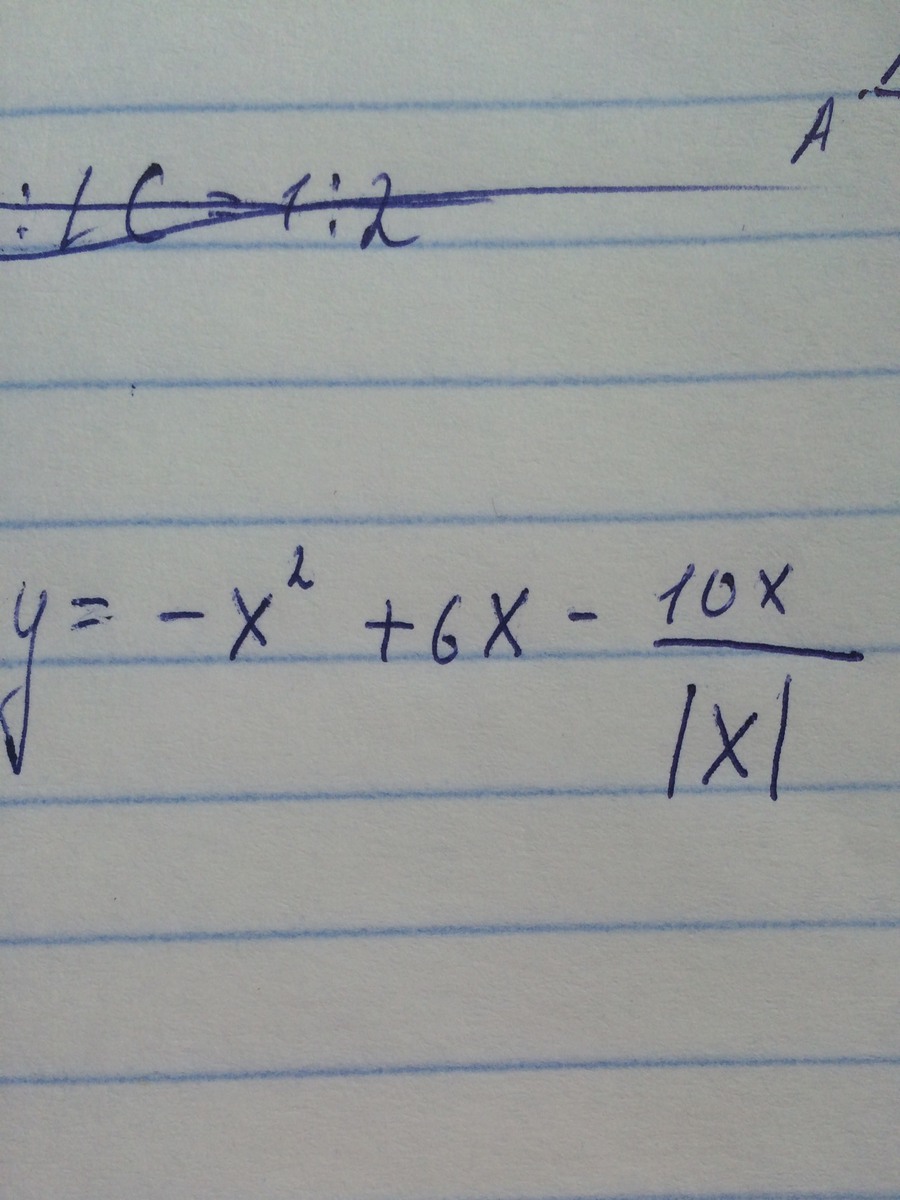 A
: LC = 1:2
y = -x² + 6x - 10x / |x|